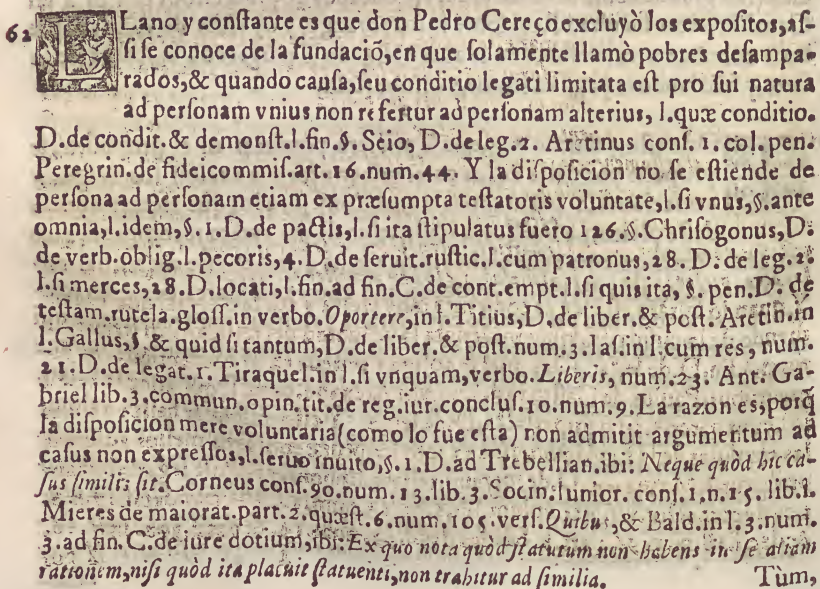 62 LLano y constante es que don Pedro Cereço excluyò los expositos, as-
si se conoce de la fundaciõ, en que solamente llamò pobres desampa-
rados, & quando causa, seu conditio legati limitata est pro sui natura
ad personam vnius non refertur ad personam alterius, l. quæ conditio.
D. de condit. & demonst. l. fin. §. Seio, D. de leg. 2. Aretinus cons. 1. col. pen.
Peregrin. de fideicommis. art. 16. num. 44. Y la disposicion no se estiende de
persona ad personam etiam ex præsumpta testatoris voluntate, l. si vnus, §. ante
omnia, l. idem, §. 1. D. de pactis, l. si ita stipulatus fuero 126. §. Chrisogonus, D.
de verb. oblig. l. pecoris, 4. D. de seruit. rustic. l. cum patronus, 28. D. de leg. 2.
l. si merces, 28. D. locati, l. fin. ad fin. C. de cont. empt. l. si quis ita, §. pen. D. de
testam. tutela. gloss. in verbo. Oportere, in l. Titius, D. de liber. & post. Aretin. in
l. Gallus, §. & quid si tantum, D. de liber. & post. num. 3. Ias. in l. cum res, num.
21. D. de legat. 1. Tiraquel. in l. si vnquam, verbo. Liberis, num. 23. Ant. Ga-
briel lib. 3. commun. opin. tit. de reg. iur. conclus. 10. num. 9. La razon es, porq̃
la disposicion mere voluntaria (como lo fue esta) non admitit argumentum ad
casus non expressos, l. seruo inuito, §. 1. D. ad Trebellian. ibi: Neque quòd hic ca-
sus similis sit. Corneus cons. 90. num. 13. lib. 3. Socin. Iunior. cons. 1. n. 15. lib. 1.
Mieres de maiorat. part. 2. quæst. 6. num. 105. vers. Quibus, & Bald. in l. 3. num.
3. ad fin. C. de iure dotium, ibi: Ex quo nota quòd statutum non habens in se aliam
rationem, nisi quòd ita placuit statuenti, non trahitur ad similia. Tùm,